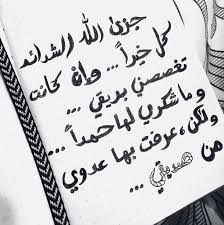 جزى الله الشدائد
كل خيراً... وإن كانت
تغصصني بريقي...
وما شكري لها حمداً...
ولكن، عرفت بها عدوي
من صديقي...